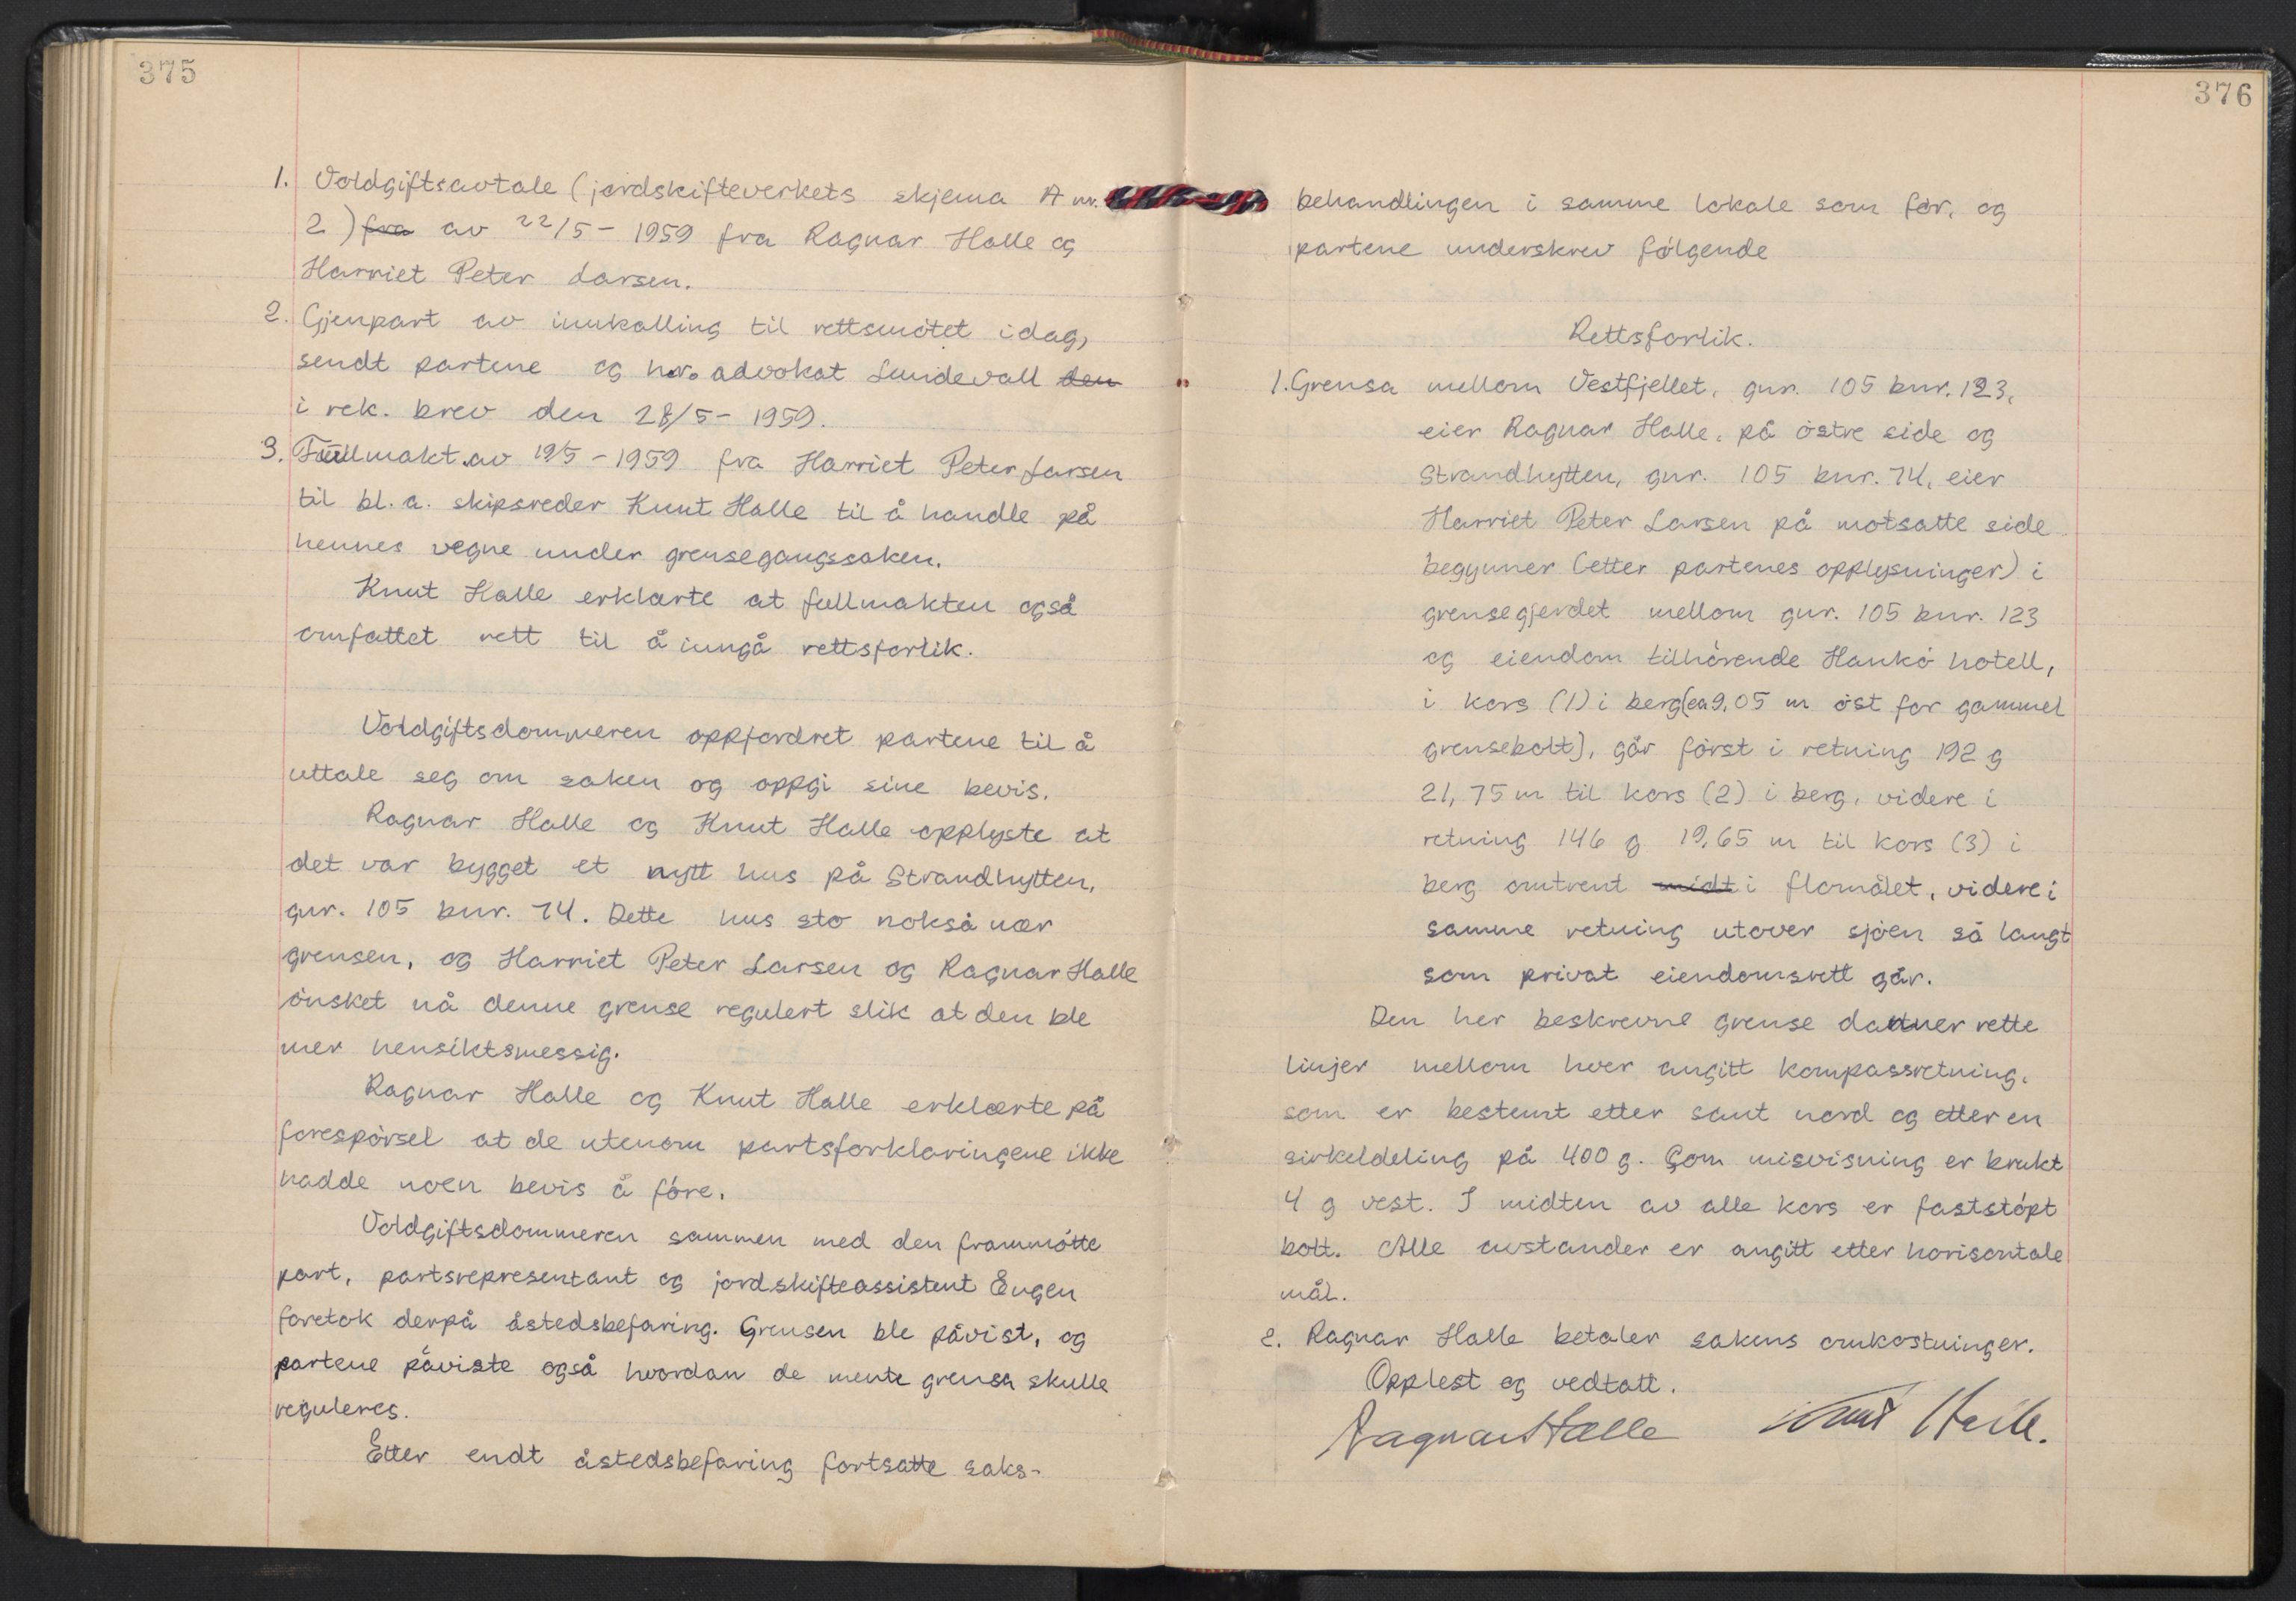 375
1. Voldgiftsavtale (jordskifteverkets skjema A nr.
2) fra av 22/5 - 1959 fra Ragnar Halle og
Harriet Peter Larsen.
2. Gjenpart av innkalling til rettsmötet idag,
sendt partene og h.r. advokat Lundevall den
i rek. brev den 28/5 - 1959.
3. Fullmakt av 19/5 - 1959 fra Harriet Peter Larsen
til bl.a. skipsreder Knut Halle til å handle på
hennes vegne under grensegangssaken.
Knut Halle erklærte at fullmakten også
omfattet rett til å inngå rettsforlik.
Voldgiftsdommeren oppfordret partene til å
uttale seg om saken og oppgi sine bevis.
Ragnar Halle og Knut Halle opplyste at
det var bygget et nytt hus på Strandhytten,
gnr. 105 bnr. 74. Dette hus sto nokså nær
grensen, og Harriet Peter Larsen og Ragnar Halle
önsket nå denne grense regulert slik at den ble
mer hensiktsmessig.
Ragnar Halle og Knut Halle erklærte på
forespörsel at de utenom partsforklaringene ikke
hadde noen bevis å före.
Voldgiftsdommeren sammen med den frammötte
part, partsrepresentant og jordskifteassistent Eugen
foretok derpå åstedsbefaring. Grensen ble påvist, og
partene påviste også hvordan de mente grensa skulle
reguleres.
Etter endt åstedsbefaring fortsatte saks-
376
behandlingen i samme lokale som för, og
partene underskrev fölgende
Rettsforlik.
1. Grensa mellom Vestfjellet, gnr. 105 bnr. 123,
eier Ragnar Halle, på östre side og
Strandhytten, gnr. 105 bnr. 74, eier
Harriet Peter Larsen på motsatte side
begynner (etter partenes opplysninger) i
grensegjerdet mellom gnr. 105 bnr. 123
og eiendom tilhörende Hankö hotell,
i kors (1) i berg (ca 9,05 m öst for gammel
grensebolt), går först i retning 192 g
21,75 m til kors (2) i berg, videre i
retning 146 g 19,65 m til kors (3) i
berg omtrent midt i flomålet, videre i
samme retning utover sjöen så langt
som privat eiendomsrett går.
Den her beskrevne grense danner rette
linjer mellom hver angitt kompassretning,
som er bestemt etter sant nord og etter en
sirkeldeling på 400 g. Som misvisning er brukt
4 g vest. I midten av alle kors er faststöpt
bolt. Alle avstander er angitt etter horisontale
mål.
2. Ragnar Halle betaler sakens omkostninger.
Opplest og vedtatt.
Ragnar Halle Knut Halle.